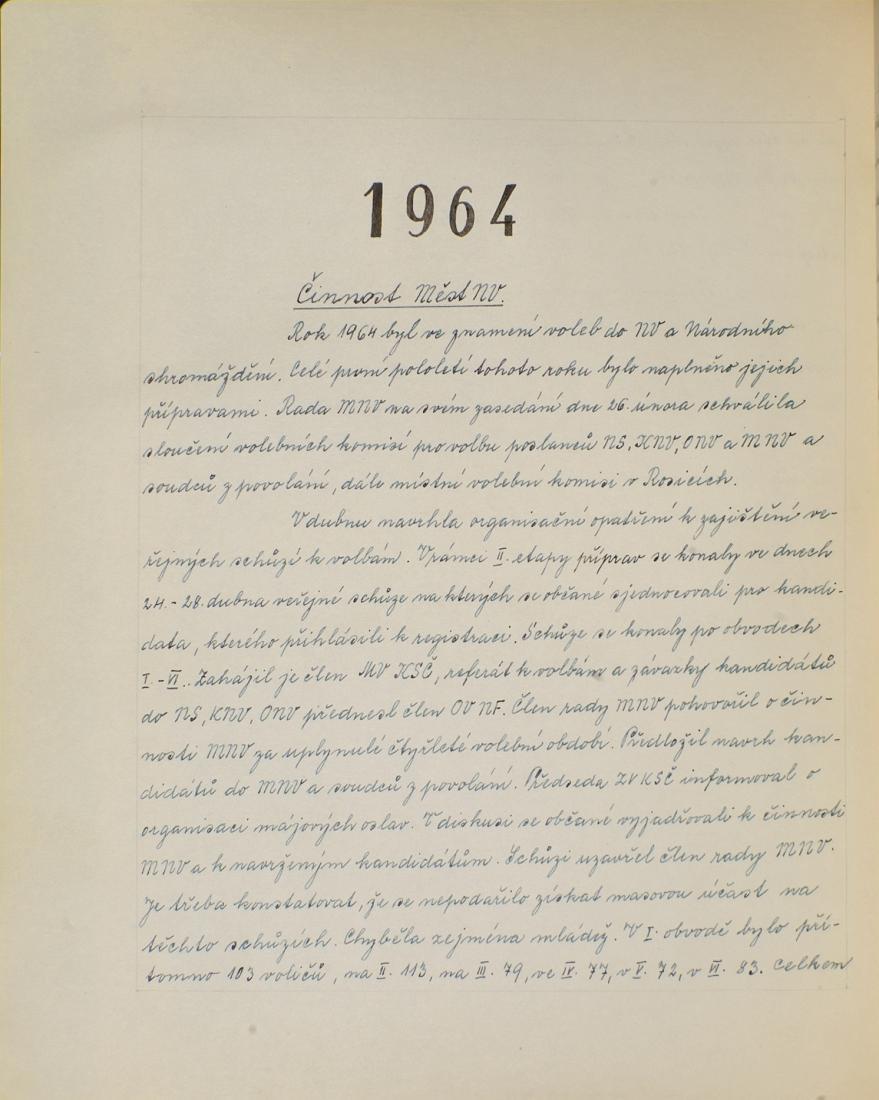 1964
Činnost Měst NV.
Rok 1964 byl ve znamení voleb do NV a Národního
shromáždění. Celé první pololetí tohoto roku bylo naplněno jejich
přípravami. Rada MNV na svém zasedání dne 26. února schválila
sloučení volebních komisí pro volbu poslanců NS, KNV, ONV a MNV a
soudců z povolání, dále místní volební komisi v Rosicích.
V dubnu navrhla organisační opatření k zajištění ve-
řejných schůzí k volbám. V rámci II. etapy příprav se konaly ve dnech
24.-28. dubna veřejné schůze na kterých se občané sjednocovali pro kandi-
dáta, kterého přihlásili k registraci. Schůze se konaly po obvodech
I.-VI.. Zahájil je člen MV KSČ, referát k volbám a závazky kandidátů
do NS, KNV, ONV přednesl člen OV NF. Člen rady MNV pohovořil o čin-
nosti MNV za uplynulé čtyřleté volební období. Předložil navrh kan-
didátů do MNV a soudců z povolání. Předseda ZV KSČ informoval o
organisaci májových oslav. V diskusi se občané vyjadřovali k činnosti
MNV a k navrženým kandidátům. Schůzi uzavřel člen rady MNV.
Je třeba konstatovat, že se nepodařilo získat masovou účast na
těchto schůzích. Chyběla zejména mládež. V I. obvodě bylo pří-
tomno 103 voličů, na II. 113, na III. 79, ve IV. 77, v V. 72, v VI. 83. Celkem